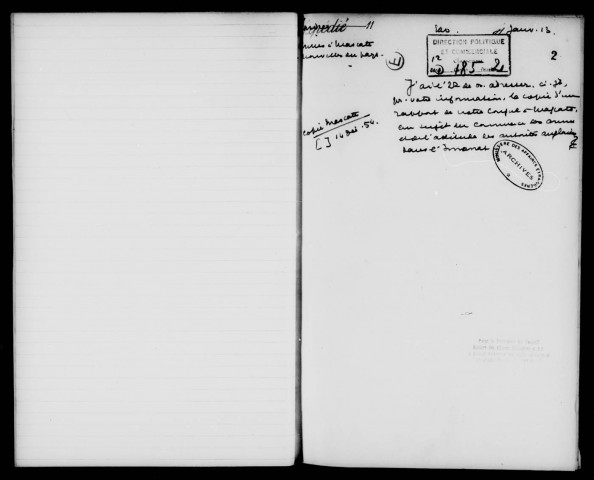 Expédié 11
Janv. 13.
DIRECTION POLITIQUE
ET COMMERCIALE
185
2
Armes à Mascate
nouvelles du pays.
J'ai l'
adresser, ci-jt,
pr. votre information, la copie d'un
rapport de notre Consul à Mascate,
au sujet du commerce des armes
et de l'attitude des autorités anglaises
dans l'Imanat
copie Mascate
[ ] 14 Déc. 54.
MINISTÈRE DES AFFAIRES ETRANGÈRES
ARCHIVES